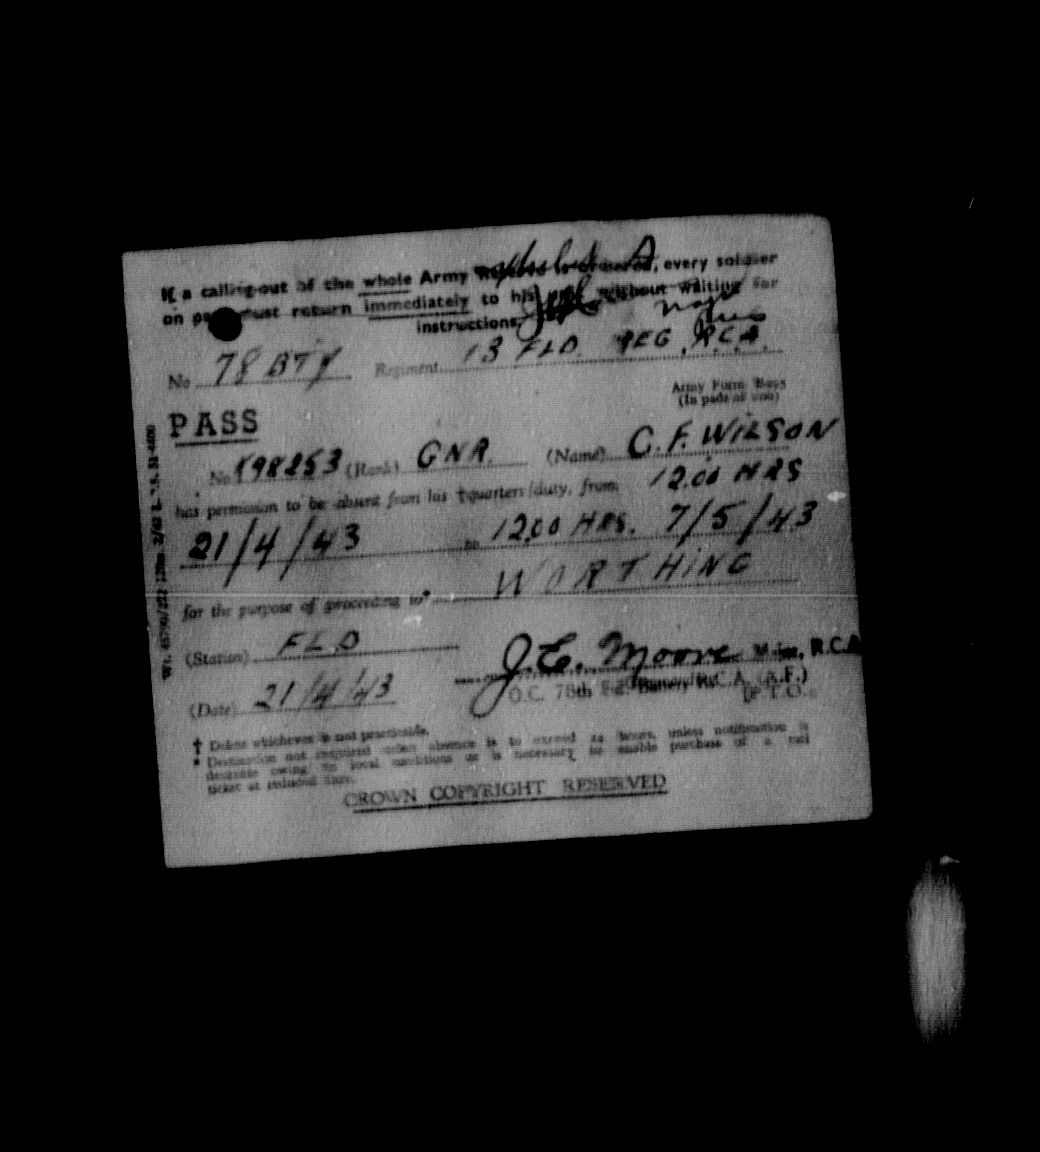 If a calling-out of the whole Army is ordered, every soldier
on pass must return immediately to his unit without waiting for
instructions.
No 78 BTY Regiment 13 FLD. REG. R.C.A.
Army Form
(In pads of 100)
PASS
No (Rank) GNR. (Name) C. F. WILSON
has permission to be absent from his †quarters/duty, from 12.00 HRS
21/4/43 to 12.00 HRS. 7/5/43
for the purpose of proceeding to* WORTHING
(Station) FLD
J. E. Moore Major, R.C.A.
(Date) 21/4/43 O.C. 78th Battery R.C.A. (A.F.)
[P.T.O.
† Delete whichever is not practicable.
* Destination not required unless absence is to exceed 48 hours, unless notification is
desirable owing to local conditions or is necessary to enable purchase of a rail
ticket at reduced fare.
CROWN COPYRIGHT RESERVED